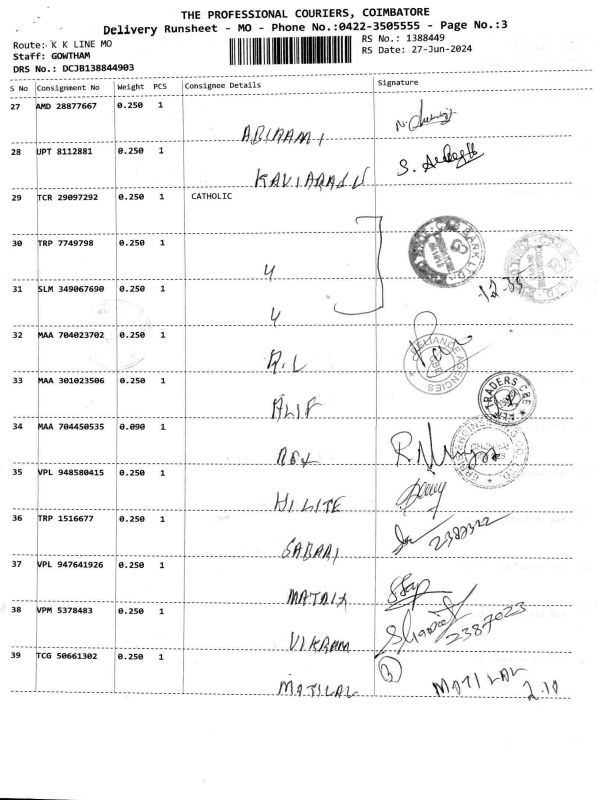 THE PROFESSIONAL COURIERS, COIMBATORE
Delivery Runsheet - MO - Phone No.:0422-3505555 - Page No.:3
Route: K K LINE MO
RS No.: 1388449
Staff: GOWTHAM
RS Date: 27-Jun-2024
DRS No.: DCJB138844903
S No Consignment No Weight PCS Consignee Details Signature
27 AMD 28877667 0.250 1
ABIRAMI
28 UPT 8112881 0.250 1
KAVIARASU
29 TCR 29097292 0.250 1 CATHOLIC
30 TRP 7749798 0.250 1
4
31 SLM 349067690 0.250 1
4
32 MAA 704023702 0.250 1
RELIANCE AGENCIES
33 MAA 301023506 0.250 1
ALIF
TRADERS CBE
34 MAA 704450535 0.090 1
35 VPL 948580415 0.250 1
HILITE
36 TRP 1516677 0.250 1
SABARI
37 VPL 947641926 0.250 1
MATRIX
38 VPM 5378483 0.250 1
VIKRAM
2387023
39 TCG 50661302 0.250 1
3
MOTILAL
MOTILAL
2.10